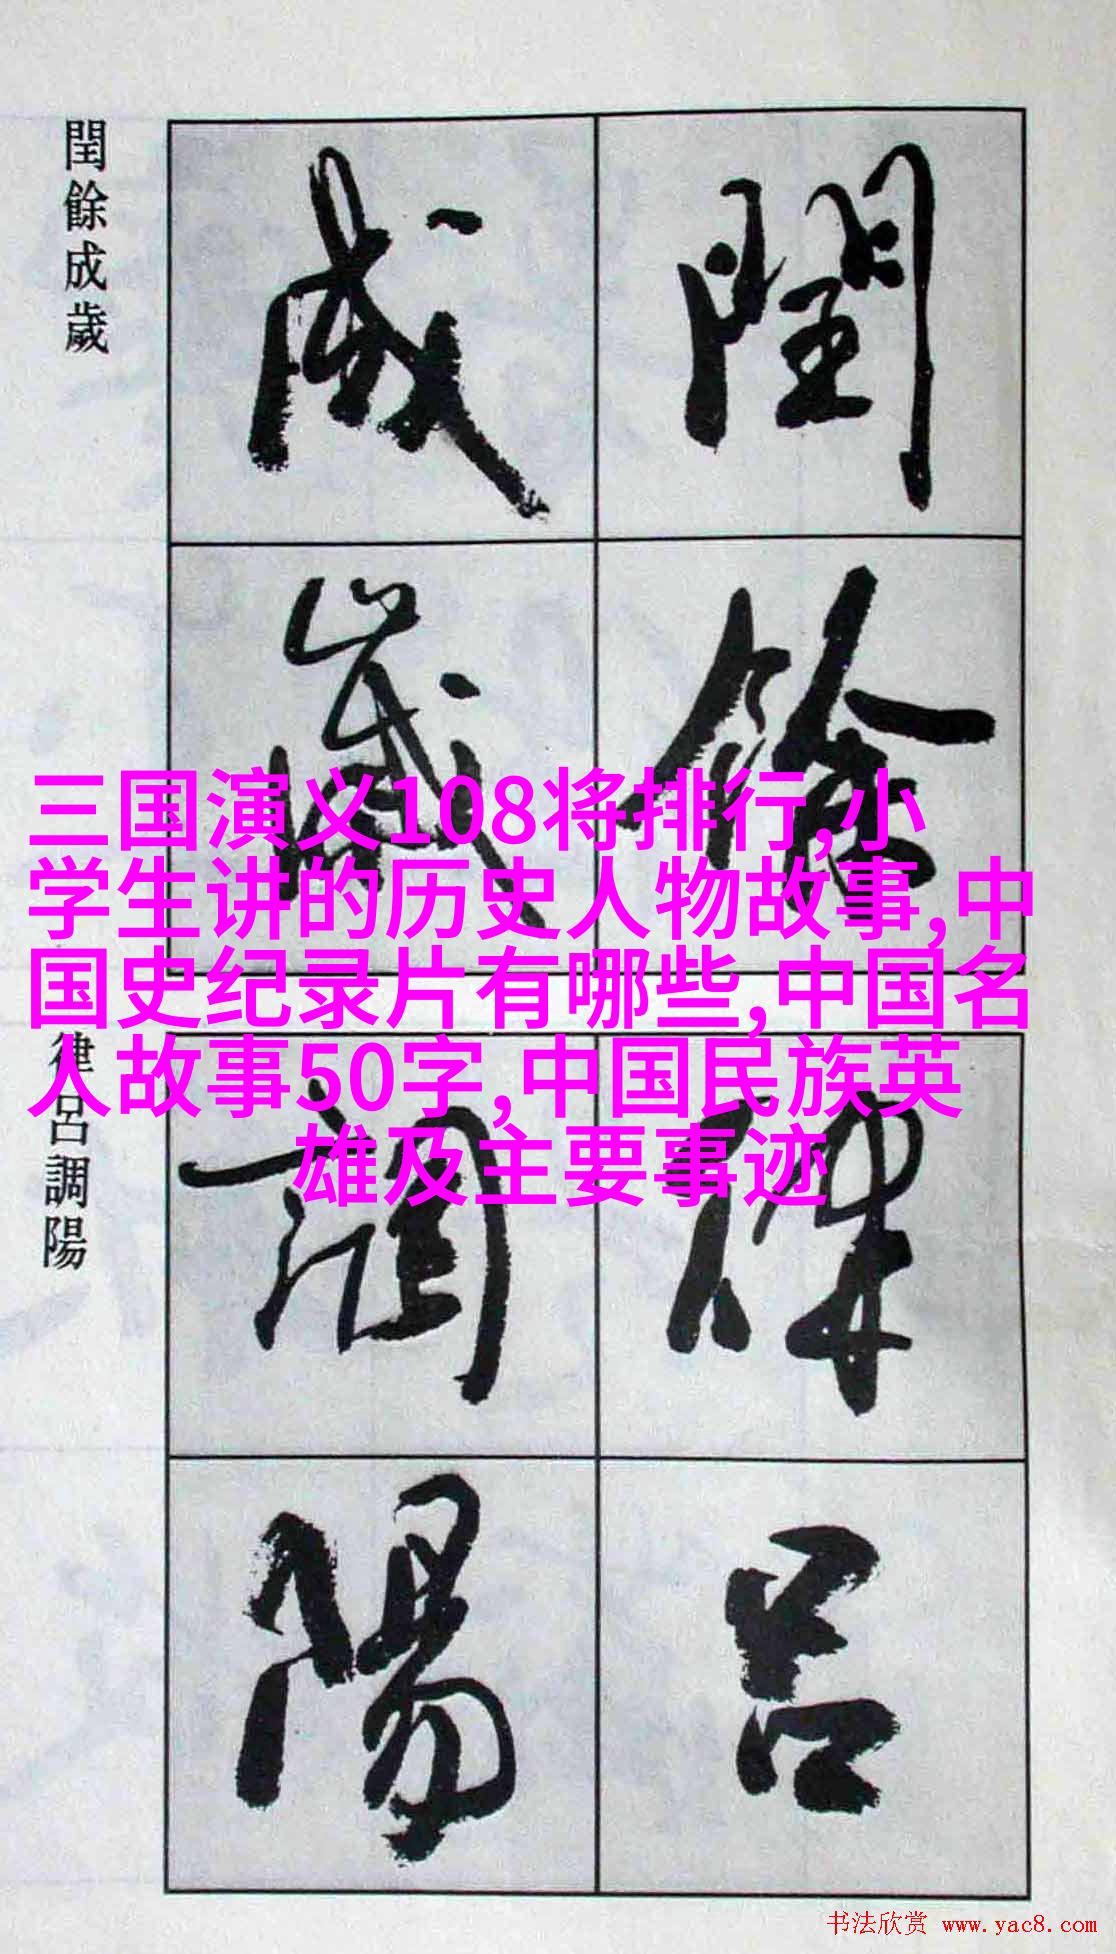 閏餘成歲
閏
餘
成
歲
三国演义108将排行,小
学生讲的历史人物故事,中
国史纪录片有哪些,中国名
人故事50字,中国民族英
雄及主要事迹
律呂調陽
律
呂
調
陽
书法欣赏 www.yac8.com